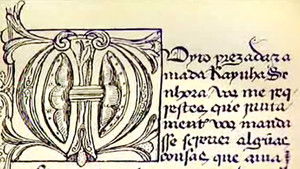 Muyto prezada z a
mada Raynha Se
nhora vos me req
restes que iunta
ment vos manda
sse screver algũas
cousas que avia